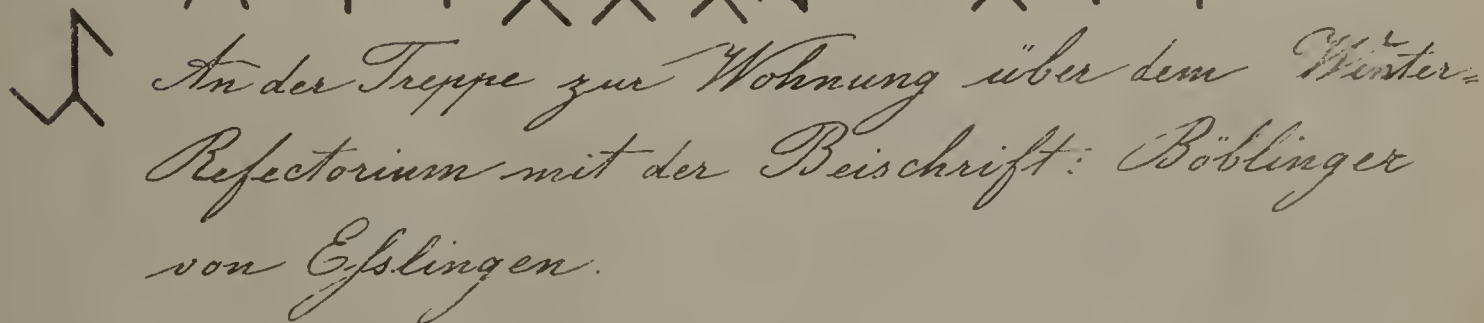 An der Treppe zur Wohnung über dem Winter=
Refectorium mit der Beischrift: Böblinger
von Eſslingen.